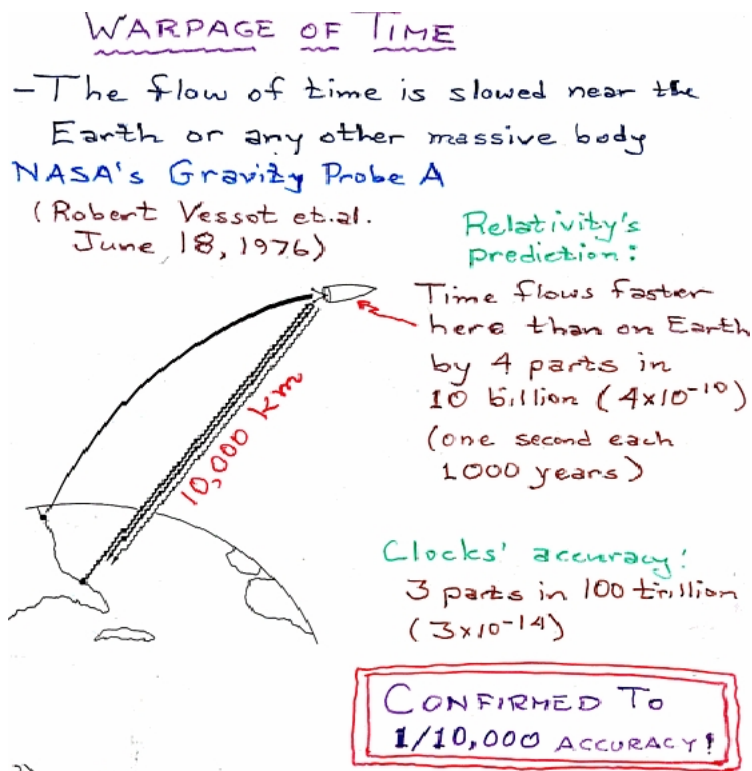 WARPAGE OF TIME
-The flow of time is slowed near the
Earth or any other massive body
NASA's Gravity Probe A
(Robert Vessot et.al.
June 18, 1976)
Relativity's
prediction:
Time flows faster
here than on Earth
by 4 parts in
10 billion (4×10⁻¹⁰)
(one second each
1000 years)
10,000 km
Clocks' accuracy:
3 parts in 100 trillion
(3×10⁻¹⁴)
CONFIRMED TO
1/10,000 ACCURACY!